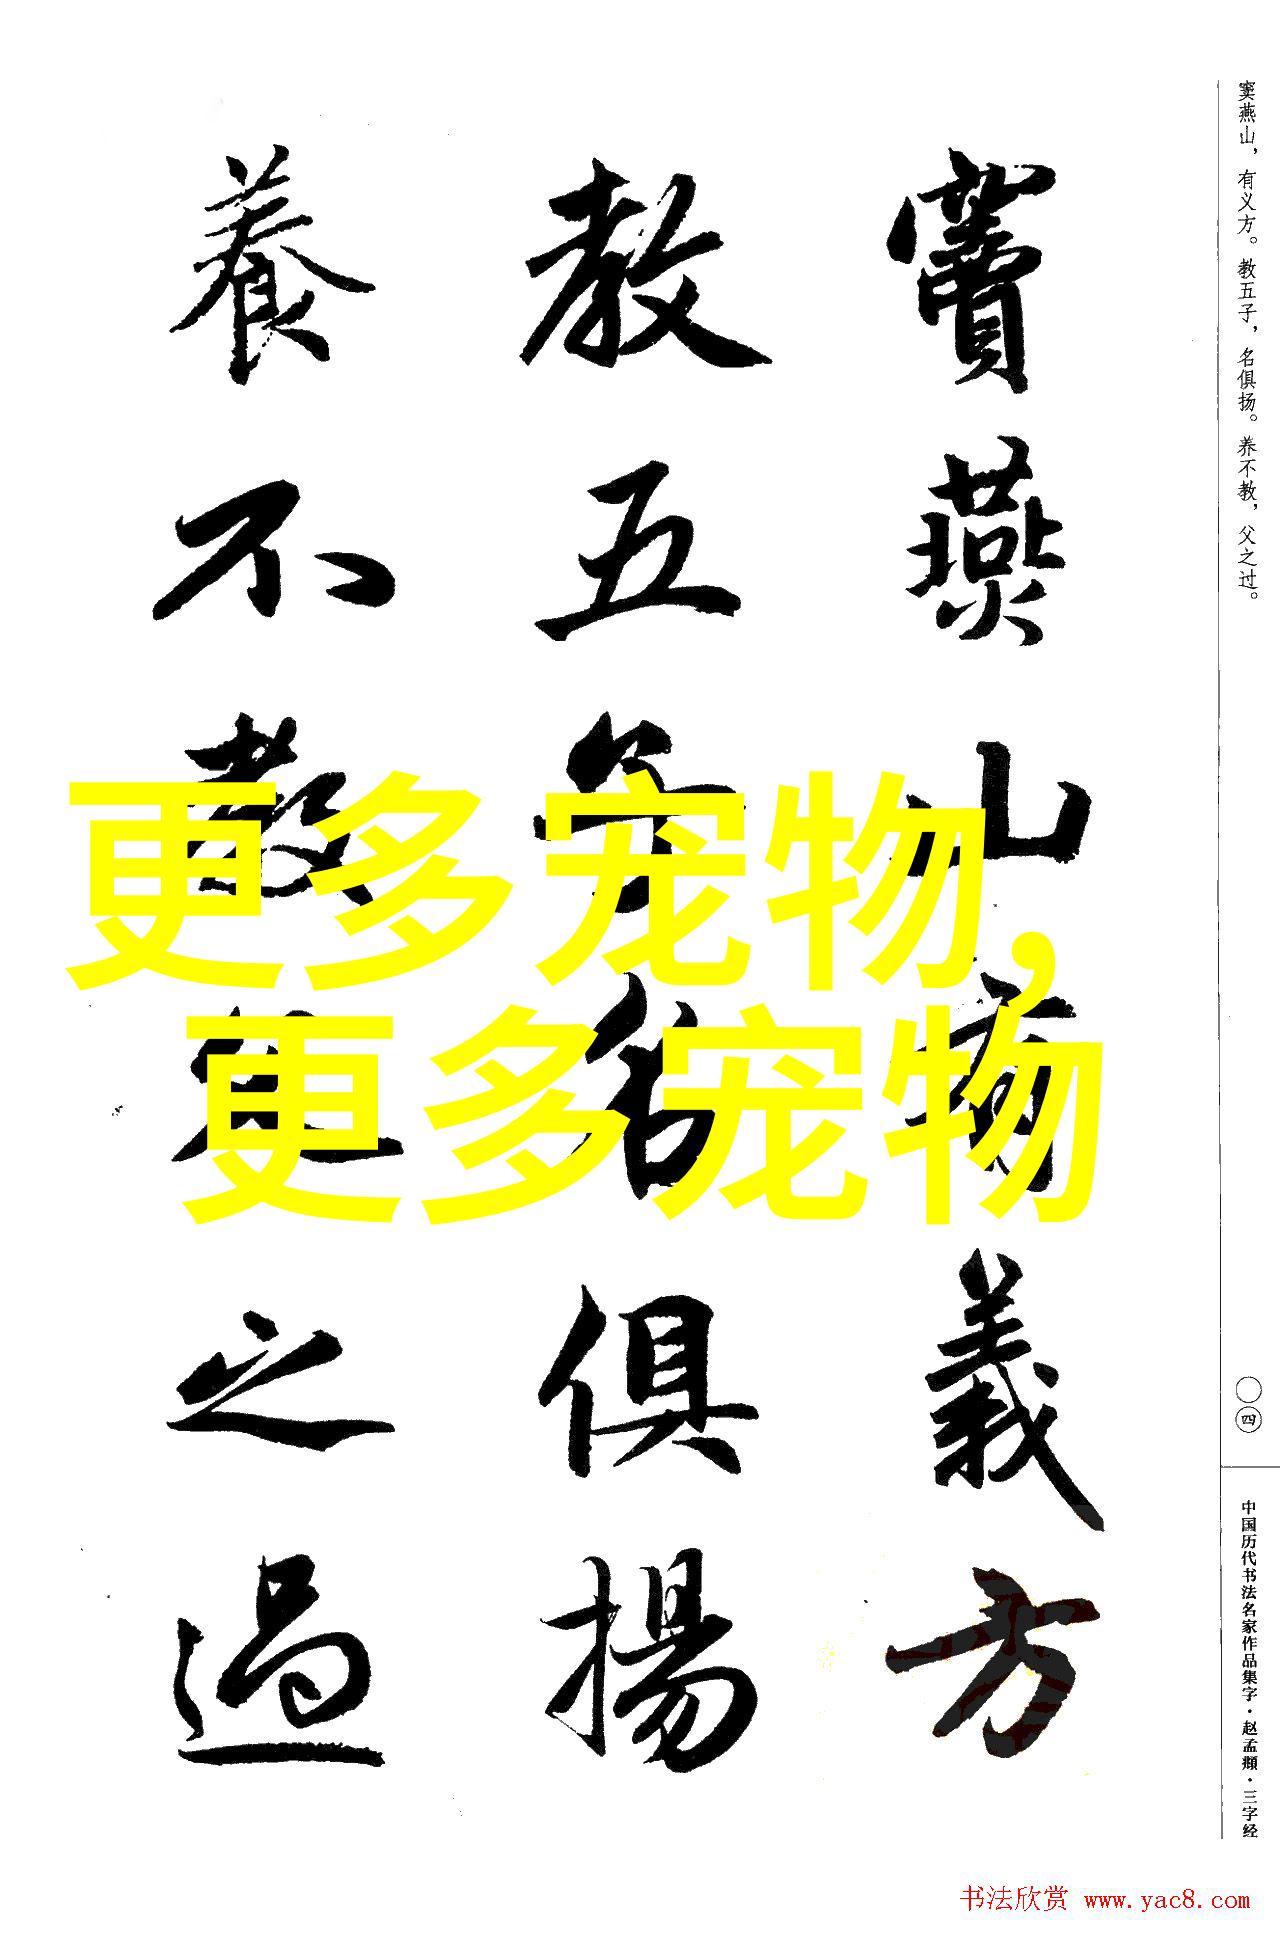 窦燕山，有义方。教五子，名俱扬。养不教，父之过。
竇燕山有義方
教五子名俱揚
養不教父之過
更多宠物，
更多宠物
〇四
中国历代书法名家作品集字·赵孟頫·三字经
书法欣赏 www.yac8.com